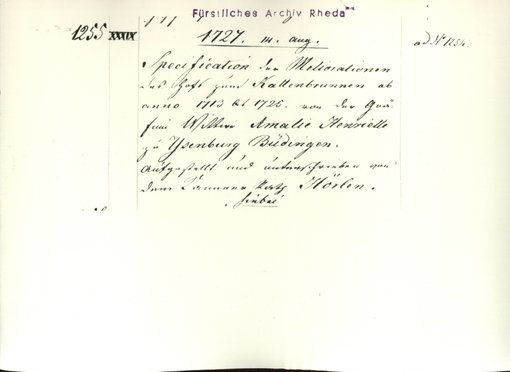 Fürstliches Archiv Rheda
1255 XXXIX 1727. 14. Aug. ad N° 1254.
Specification der Meliorationen
des Hofs zum Kaltenbrunnen ab
anno 1713 bis 1726. von der Grä-
fin Wittwe Amalie Henriette
zu Ysenburg Büdingen.
aufgestellt und unterschrieben von
dem Hörlen.